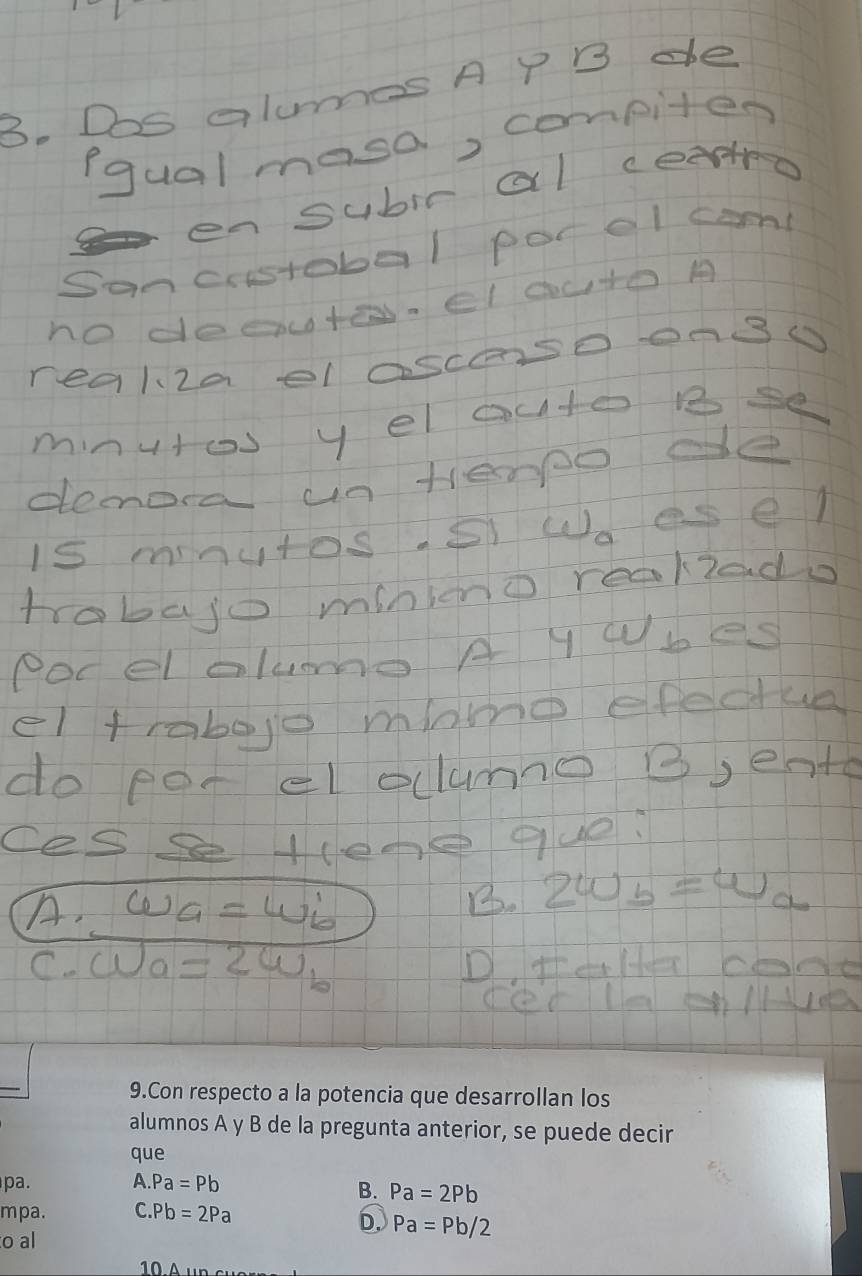 3. Dos alumos A y B de
igual masa, compiten
en subir al
San cristobal por el cami
no de autos. el auto A
realiza el ascenso en 30
minutos y el auto B se
demora un tiempo de
15 minutos. Si Wa es el
trabajo minimo realizado
por el alumno A y Wb es
el trabajo minimo efectua
do por el alumno B, ento
ces se tiene que:
A. Wa = Wb B. 2Wb = Wa
C. Wa = 2Wb D. falta cono
cer la altua
9.Con respecto a la potencia que desarrollan los
alumnos A y B de la pregunta anterior, se puede decir
que
pa. A.Pa = Pb B. Pa = 2Pb
mpa. C.Pb = 2Pa D. Pa = Pb/2
o al
10.A un